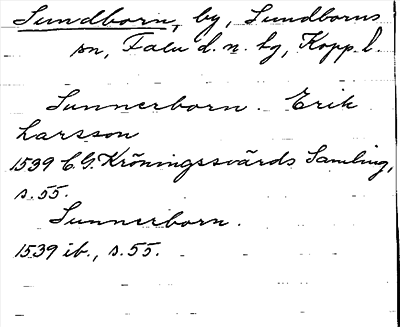 Sundborn, by, Sundborns
sn, Falu d. n. hg, Kopp. l.
Sunnerborn. Erik
Larsson
1539 C. G. Kröningssvärds Samling,
s. 55.
Sunnerborn.
1539 ib., s. 55.